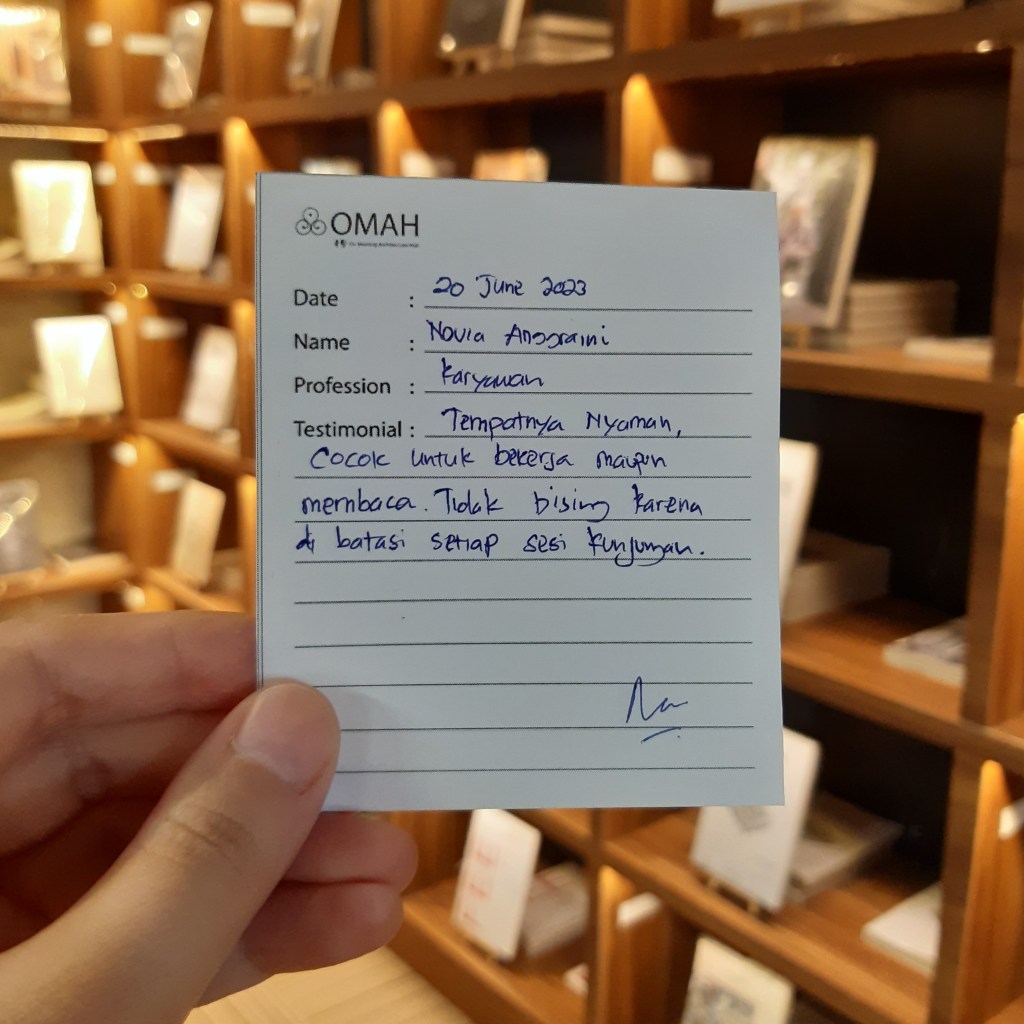 OMAH
Date : 20 June 2023
Name : Novia Anggraini
Profession : Karyawan
Testimonial : Tempatnya Nyaman,
Cocok untuk bekerja maupun
membaca. Tidak bising karena
di batasi setiap sesi kunjungan.